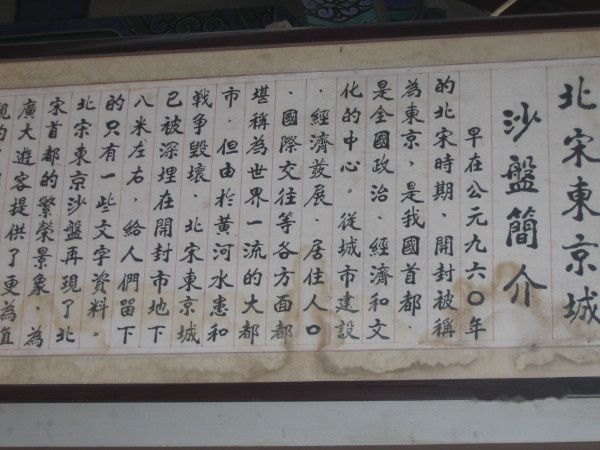 北宋東京城
沙盤簡介
早在公元九六〇年
的北宋時期，開封被稱
為東京，是我國首都，
是全國政治、經濟和文
化的中心。從城市建設
、經濟發展、居住人口
、國際交往等各方面都
堪稱為世界一流的大都
市。但由於黄河水患和
戰争毀壞，北宋東京城
已被深埋在開封市地下
八米左右，給人們留下
的只有一些文字資料。
北宋東京沙盤再現了北
宋首都的繁榮景象，為
廣大遊客提供了更為直
觀的